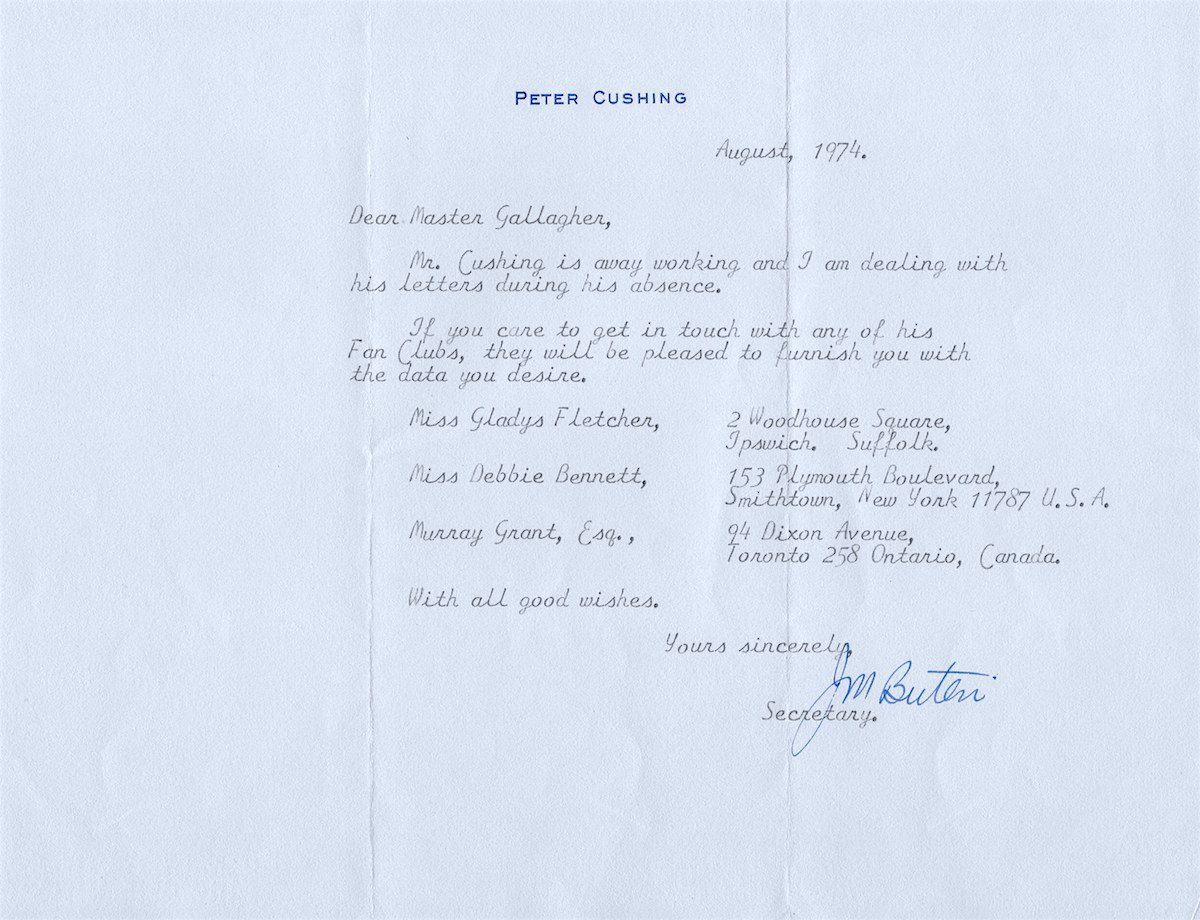 PETER CUSHING
August, 1974.
Dear Master Gallagher,
Mr. Cushing is away working and I am dealing with
his letters during his absence.
If you care to get in touch with any of his
Fan Clubs, they will be pleased to furnish you with
the data you desire.
Miss Gladys Fletcher, 2 Woodhouse Square,
Ipswich. Suffolk.
Miss Debbie Bennett, 153 Plymouth Boulevard,
Smithtown, New York 11787 U.S.A.
Murray Grant, Esq., 94 Dixon Avenue,
Toronto 258 Ontario, Canada.
With all good wishes.
Yours sincerely,
JM
Secretary.